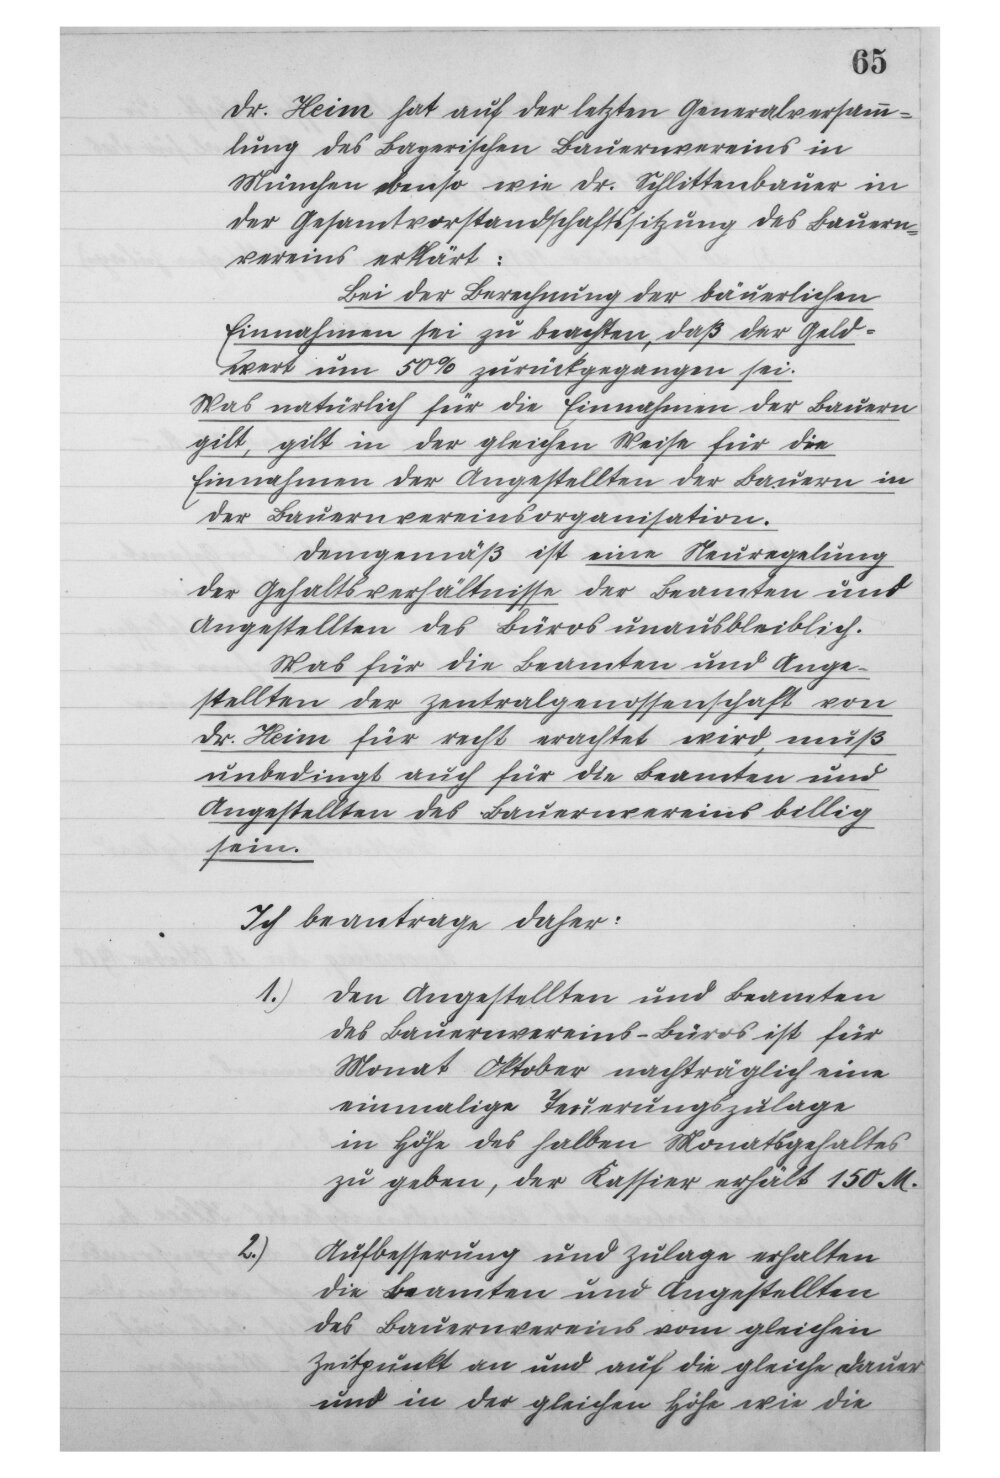 65
Dr. Heim hat auf der letzten Generalversam̅-
lung des Bayerischen Bauernvereins in
München ebenso wie Dr. Schlittenbauer in
der Gesamtvorstandschaftssitzung des Bauern-
vereins erklärt:
Bei der Berechnung der bäuerlichen
Einnahmen sei zu beachten, daß der Geld-
wert um 50% zurückgegangen sei.
Was natürlich für die Einnahmen der Bauern
gilt, gilt in der gleichen Weise für die
Einnahmen der Angestellten der Bauern in
der Bauernvereinsorganisation.
Demgemäß ist eine Neuregelung
der Gehaltsverhältnisse der Beamten und
Angestellten des Büros unausbleiblich.
Was für die Beamten und Ange-
stellten der Zentralgenossenschaft von
Dr. Heim für recht erachtet wird, muß
unbedingt auch für die Beamten und
Angestellten des Bauernvereins billig
sein.
Ich beantrage daher:
1.) Den Angestellten und Beamten
des Bauernvereins-Büros ist für
Monat Oktober nachträglich eine
einmalige Teuerungszulage
in Höhe des halben Monatsgehaltes
zu geben, der Kassier erhält 150 M.
2.) Aufbesserung und Zulage erhalten
die Beamten und Angestellten
des Bauernvereins vom gleichen
Zeitpunkt an und auf die gleiche Dauer
und in der gleichen Höhe wie die